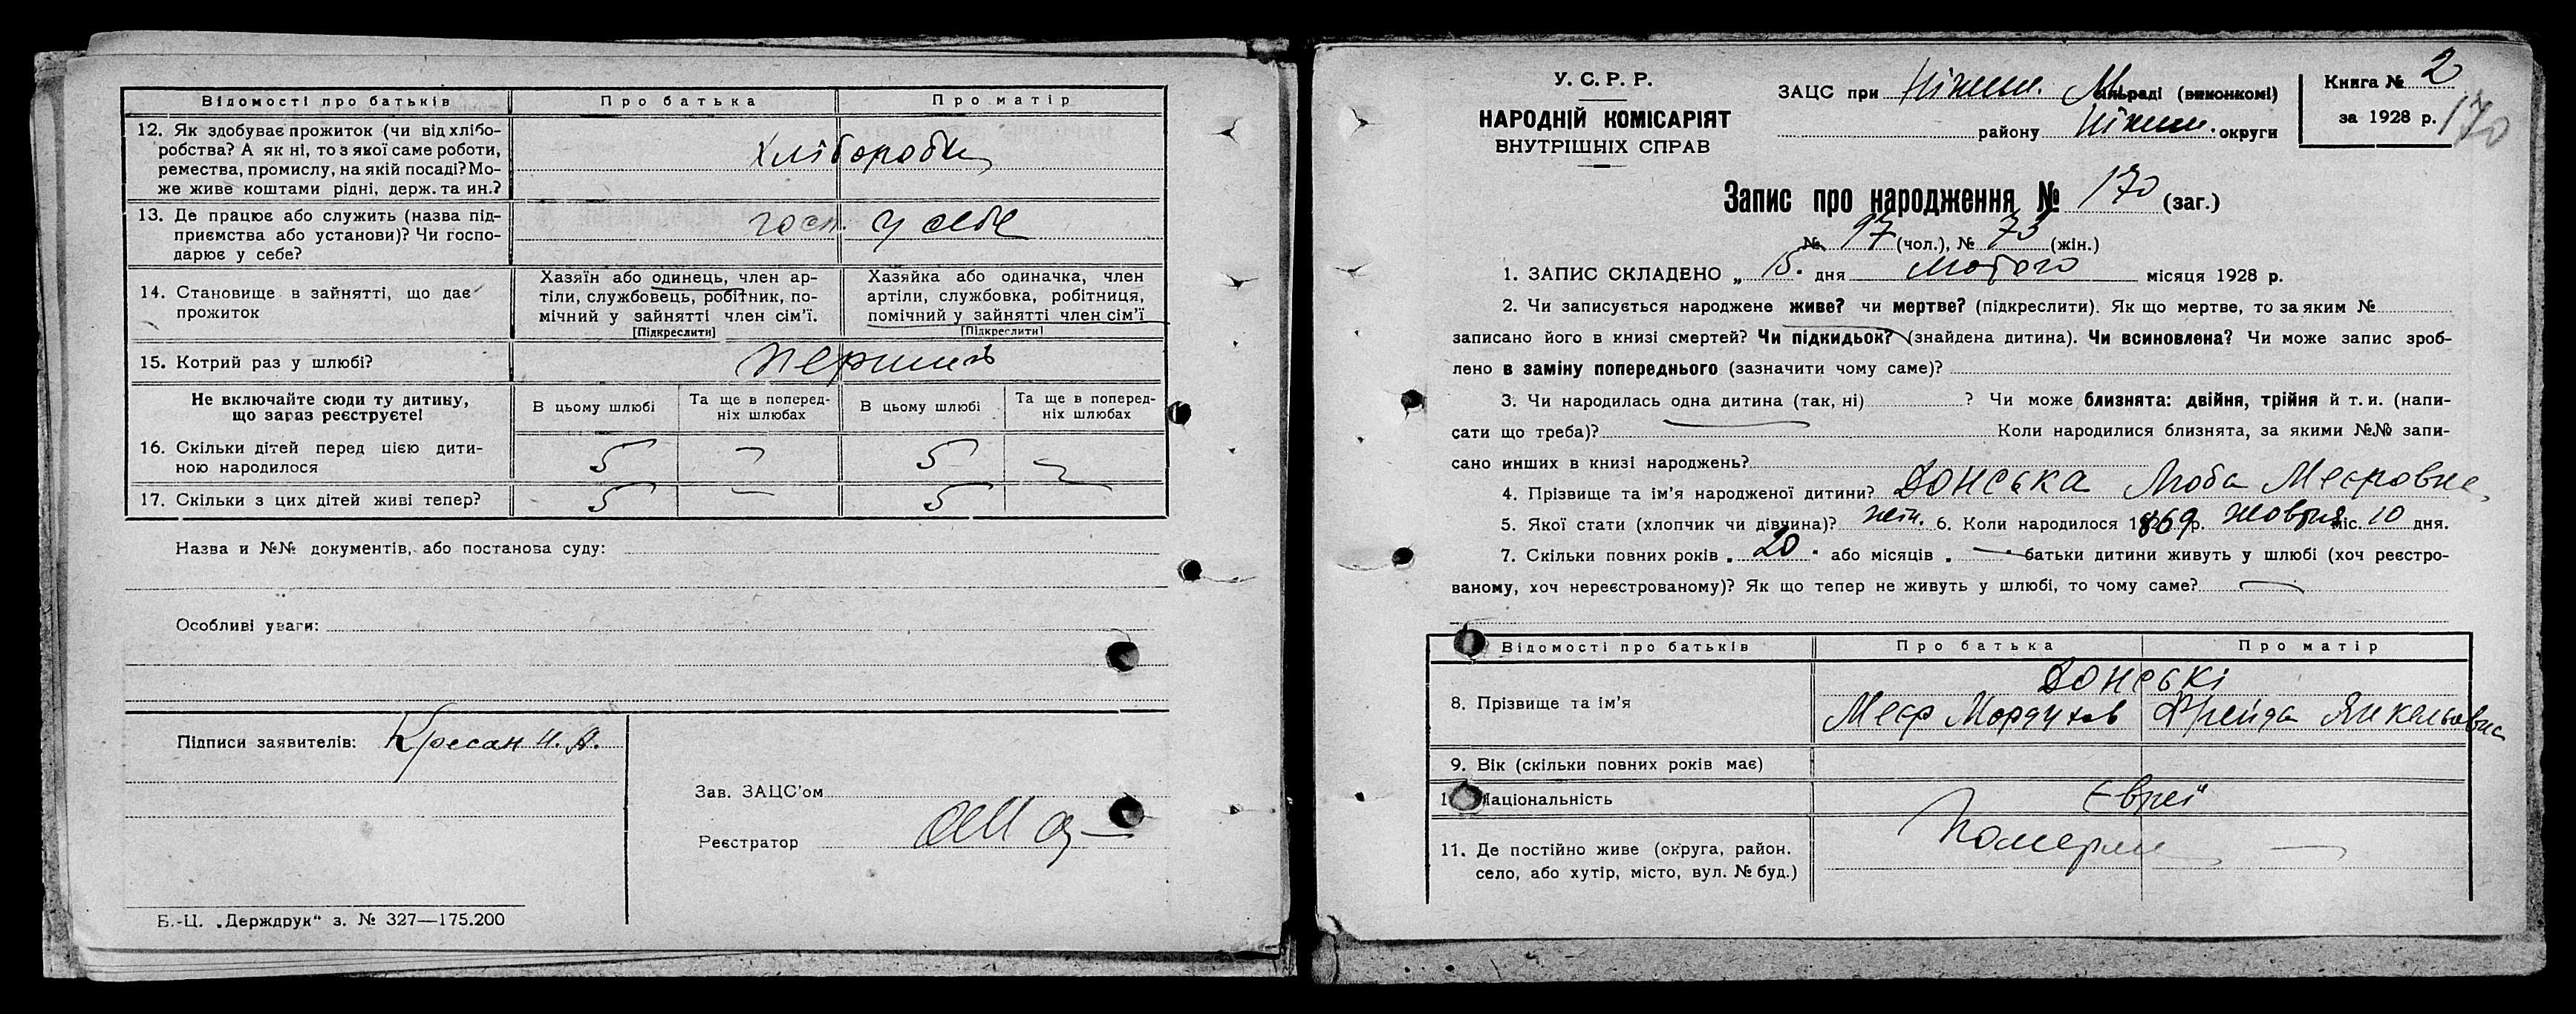 Відомості про батьків Про батька Про матір
12. Як здобуває прожиток (чи від хлібо-
робства? А як ні, то з якої саме роботи,
ремества, промислу, на якій посаді? Мо-
же живе коштами рідні, держ. та ин.?
Хлібороби
13. Де працює або служить (назва під-
приємства або установи)? Чи госпо-
дарює у себе?
госп. у себе
14. Становище в зайнятті, що дає
прожиток
Хазяїн або одинець, член ар-
тіли, службовець, робітник, по-
мічний у зайнятті член сім'ї.
[Підкреслити]
Хазяйка або одиначка, член
артіли, службовка, робітниця,
помічний у зайнятті член сім'ї
[Підкреслити]
15. Котрий раз у шлюбі? перший
Не включайте сюди ту дитину,
що зараз реєструєте!
В цьому шлюбі Та ще в поперед-
ніх шлюбах В цьому шлюбі Та ще в поперед-
ніх шлюбах
16. Скільки дітей перед цією дити-
ною народилося
5 — 5 —
17. Скільки з цих дітей живі тепер? 5 — 5
Назва и №№ документів, або постанова суду:
Особливі уваги:
Підписи заявителів: Кресан И. А.
Зав. ЗАЦС'ом
Реєстратор
Б.-Ц. „Держдрук" з. № 327—175.200
У. С. Р. Р.
НАРОДНІЙ КОМІСАРІЯТ
ВНУТРІШНІХ СПРАВ
ЗАЦС при Ніжин. М. сільраді (виконкомі)
району Ніжин. округи
Книга № 2
за 1928 р.
170
Запис про народження № 170 (заг.)
№ 97 (чол.), № 73 (жін.)
1. ЗАПИС СКЛАДЕНО „ 15. дня лютого місяця 1928 р.
2. Чи записується народжене живе? чи мертве? (підкреслити). Як що мертве, то за яким №
записано його в книзі смертей? Чи підкидьок? (знайдена дитина). Чи всиновлена? Чи може запис зроб-
лено в заміну попереднього (зазначити чому саме)?
3. Чи народилась одна дитина (так, ні) ? Чи може близнята: двійня, трійня й т. и. (напи-
сати що треба)? Коли народилися близнята, за якими №№ запи-
сано инших в книзі народжень?
4. Прізвище та ім'я народженої дитини? Донська Люба Меєровна
5. Якої стати (хлопчик чи дівчина)? жін. 6. Коли народилося 1869 р. жовтня міс. 10 дня.
7. Скільки повних років „ 20 " або місяців „ — " батьки дитини живуть у шлюбі (хоч реєстро-
ваному, хоч нереєстрованому)? Як що тепер не живуть у шлюбі, то чому саме? —
Відомості про батьків Про батька Про матір
Донські
8. Прізвище та ім'я Меєр Мордухов Фрейда Янкельовна
9. Вік (скільки повних років має)
10. Національність Євреї
11. Де постійно живе (округа, район.
село, або хутір, місто, вул. № буд.)
Померли —